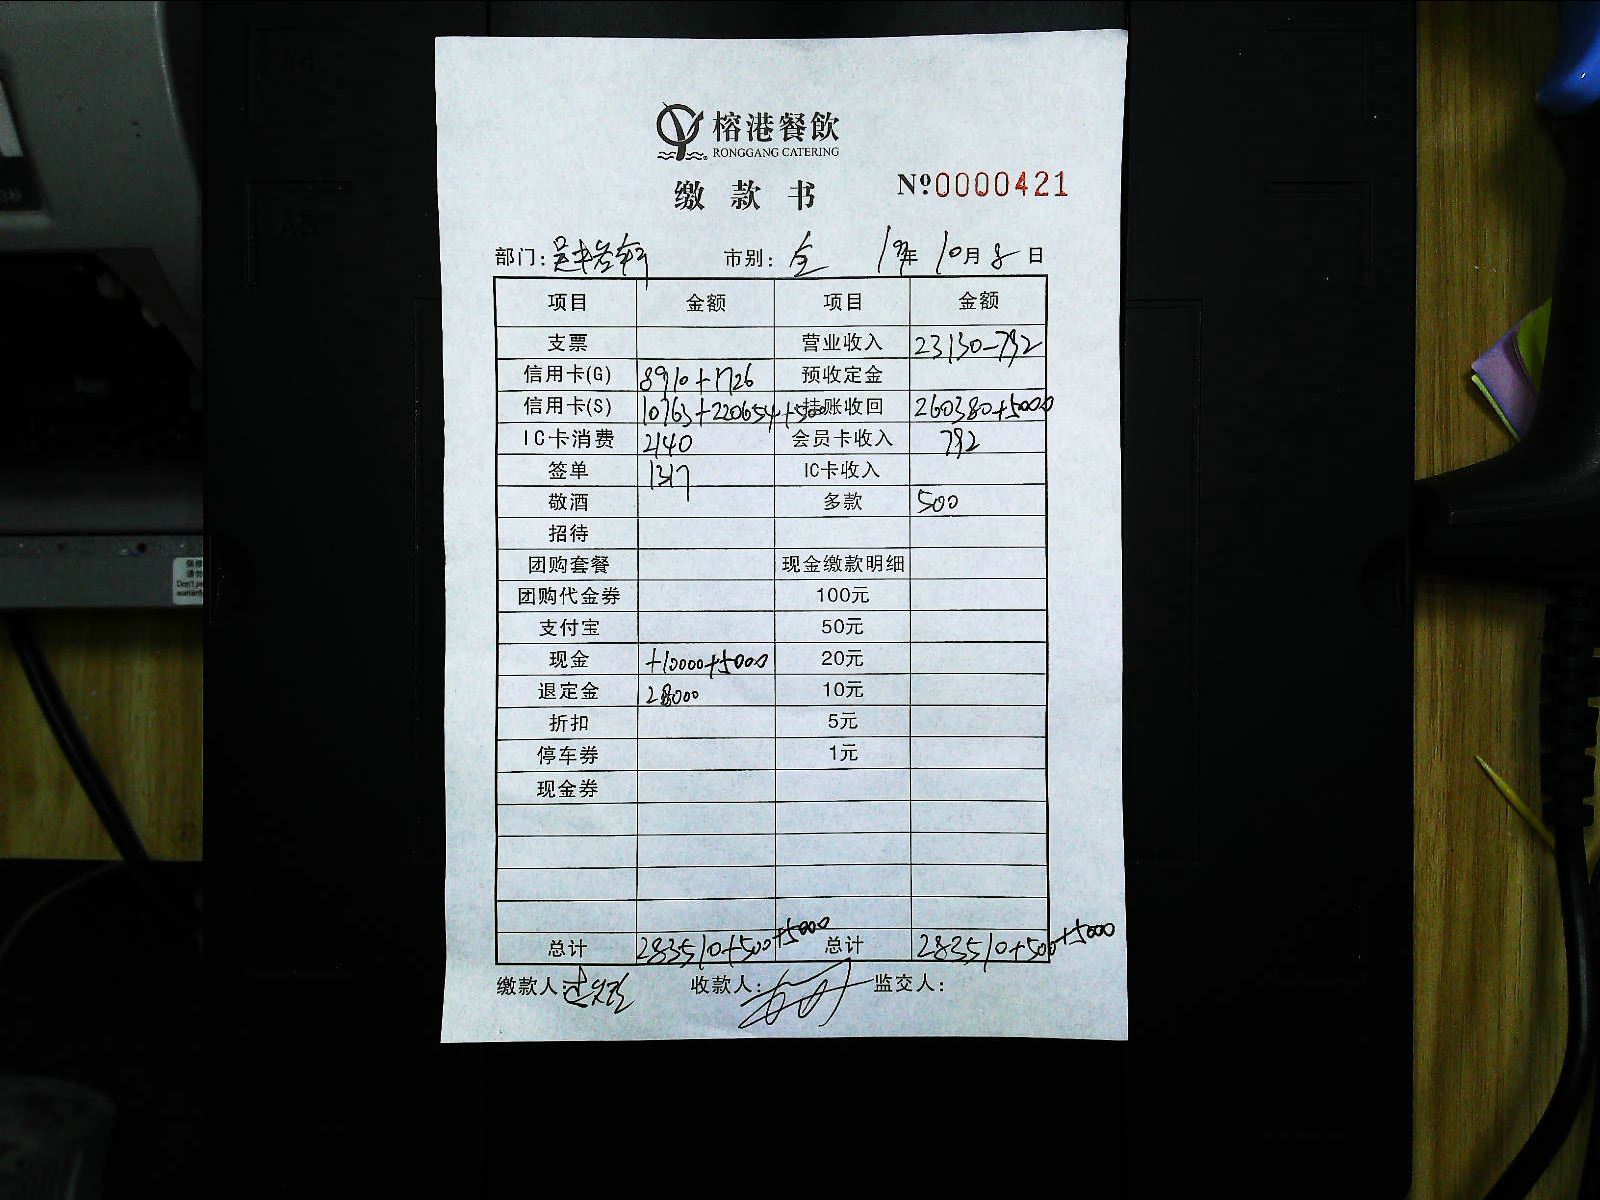 榕港餐飲
RONGGANG CATERING
缴款书 Nº0000421
部门: 市别: 全 19年 10月 8日
项目 金额 项目 金额
支票 营业收入 23130-792
信用卡(G) 8910+1726 预收定金
信用卡(S) 10763+220654+500 挂账收回 260380+5000
IC卡消费 2140 会员卡收入 792
签单 1317 IC卡收入
敬酒 多款 500
招待
团购套餐 现金缴款明细
团购代金券 100元
支付宝 50元
现金 +10000+5000 20元
退定金 28000 10元
折扣 5元
停车券 1元
现金券
总计 283510+500+5000 总计 283510+500+5000
缴款人: 收款人: 监交人: